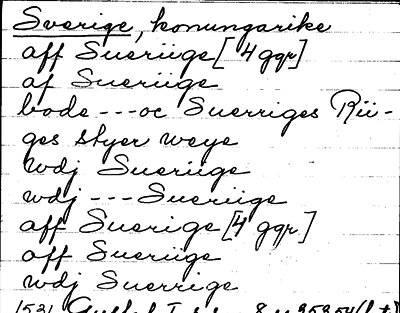 Sverige, konungarike
aff Sueriige [4 ggr]
af Sueriige
bode --- oc Suerriges Rii-
ges styer weye
wdj Sueriige
wdj --- Sueriige
aff Suerige [4 ggr]
aff Sueriige
wdj Suerrige
1531